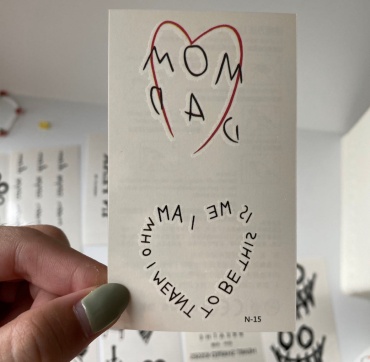 MOM
DAD
I AM WHO I MEANT TO BE THIS IS ME
N-15